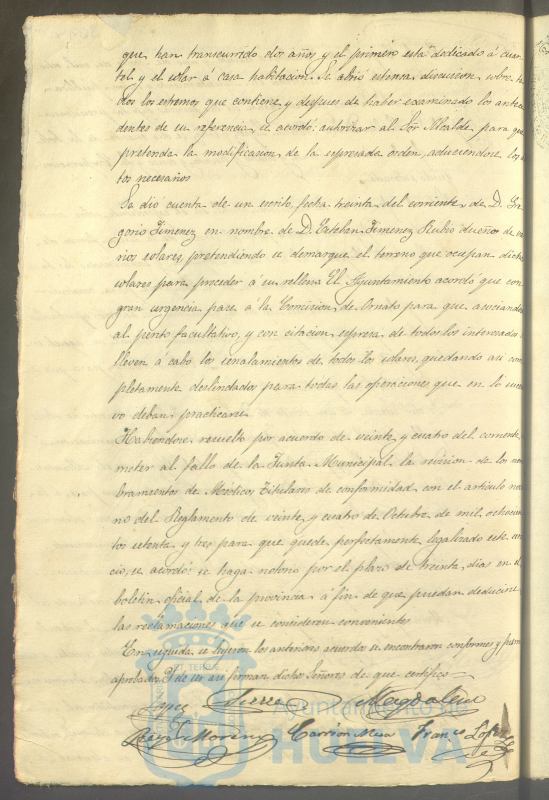 que han transcurrido dos años y el primero está dedicado á cuar
tel y el solar á casa habitacion. Se abrió estensa discusion, sobre to
dos los estremos que contiene y despues de haber examinado los antece
dentes de su referencia, se acordó: autorizar al Sor Alcalde para que
pretenda la modificacion de la espresada orden, aduciendose los
tos necesarios
Se dió cuenta de un escrito, fecha treinta del corriente, de D. Gre
gorio Jimenez en nombre de D. Esteban Jimenez Rubio dueños de va
rios solares, pretendiendo se demarque el terreno que ocupan dichos
solares para proceder á su relleno. El Ayuntamiento acordó que con
gran urgencia pase á la Comision de Ornato para que asociandose
al perito facultativo, y con citacion espresa de todos los interesados
lleven á cabo los senalamientos de todos los solares, quedando asi com
pletamente deslindados para todas las operaciones que en lo suce
vo deban practicarse
Habiendose resuelto por acuerdo de veinte y cuatro del corriente
meter al fallo de la Junta Municipal la revision de los nom
bramientos de Médicos Titulares de conformidad con el articulo no
no del Reglamento de veinte y cuatro de Octubre de mil ochocien
tos setenta y tres para que quede perfectamente legalizado este
cio, se acordó: se haga notorio por el plazo de treinta dias en el
boletin oficial de la provincia á fin de que puedan deducirse
las reclamaciones que se consideren convenientes
En seguida se leyeron los anteriores acuerdos se encontraron conformes y fueron
aprobados. Y de ser asi firman dichos Señores de que certifico
Lopez Sierra Magdalena
Perez Moreno Carrion Mesa Franco Lopez
Ayuntamiento de
HUELVA